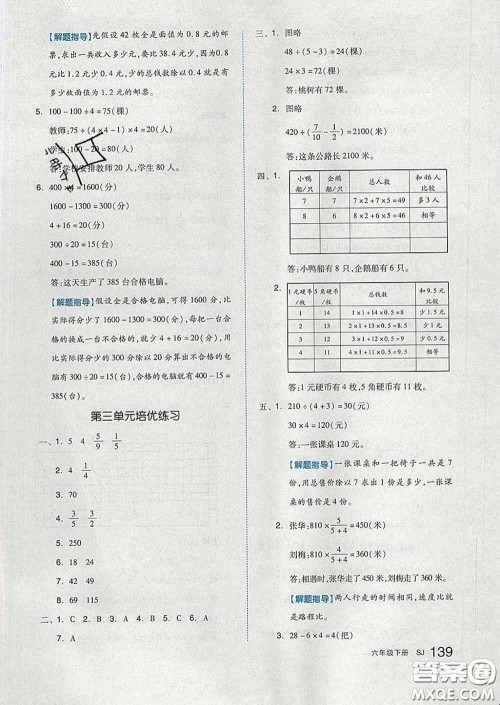 【解题指导】先假设 42 枚全是面值为 0.8 元的邮
票，求出一共收入多少元，要比 38.4 元少，因为
0.8 元比 1.2 元少 0.4，少的总钱数除以 0.4 就是有
多少枚面值为 1.2 元的邮票。
5. 100-100÷4=75(棵)
教师:75÷(4×4-1)×4=20(人)
学生:100-20=80(人)
答:学校安排教师 20 人，学生 80 人。
6. 400×4=1600(分)
1600-1300=300(分)
4+16=20(分)
300÷20=15(台)
400-15=385(台)
答:这天生产了 385 台合格电脑。
【解题指导】假设全是合格电脑，可得 1600 分，比
实际得分少了 1600-1300=300(分)，每一台合
格的换成一台不合格的，就少了 4+16=20(分)，用
比实际少的 300 分除以 20 算出不合格的电脑有
300÷20=15(台)，合格的有 400-15=385(台)。
第三单元培优练习
一、1. 5 4 5/9 1/5
2. 4 1/4
3. 70
4. 3/5 3/2
5. 250
6. 18 24
7. 15 21
8. 69 115
二、1. C 2. B 3. A 4. B 5. C 6. A
7. A
三、1. 图略
48÷(5-3)=24(棵)
24×3=72(棵)
答:桃树有 72 棵。
2. 图略
420÷(7/10-1/2)=2100(米)
答:这条公路长 2100 米。
四、1.
小鸭船/只 企鹅船/只 总人数 和46人比较
7 7 7×2+7×5=49 多3人
8 6 8×2+6×5=46 相等
答:小鸭船有 8 只，企鹅船有 6 只。
2.
1元硬币/枚 5角硬币/枚 总钱数 和9.5元比较
1 14 1×1+14×0.5=8 少1.5元
2 13 2×1+13×0.5=8.5 少1元
3 12 3×1+12×0.5=9 少0.5元
4 11 4×1+11×0.5=9.5 相等
答:1 元硬币有 4 枚，5 角硬币有 11 枚。
五、1. 210÷(4+3)=30(元)
30×4=120(元)
答:一张课桌 120 元。
【解题指导】一张课桌和一把椅子一共是 7
份，用总价除以 7 求出 1 份是多少，一张课
桌的售价是 4 份。
2. 张华:810×5/(5+4)=450(米)
刘梅:810×4/(5+4)=360(米)
答:相遇时，张华走了 450 米，刘梅走了 360 米。
【解题指导】两人行走的时间相同，速度比就
是路程比。
3. 28-6×4=4(把)
六年级下册 SJ 139
MXQE.COM